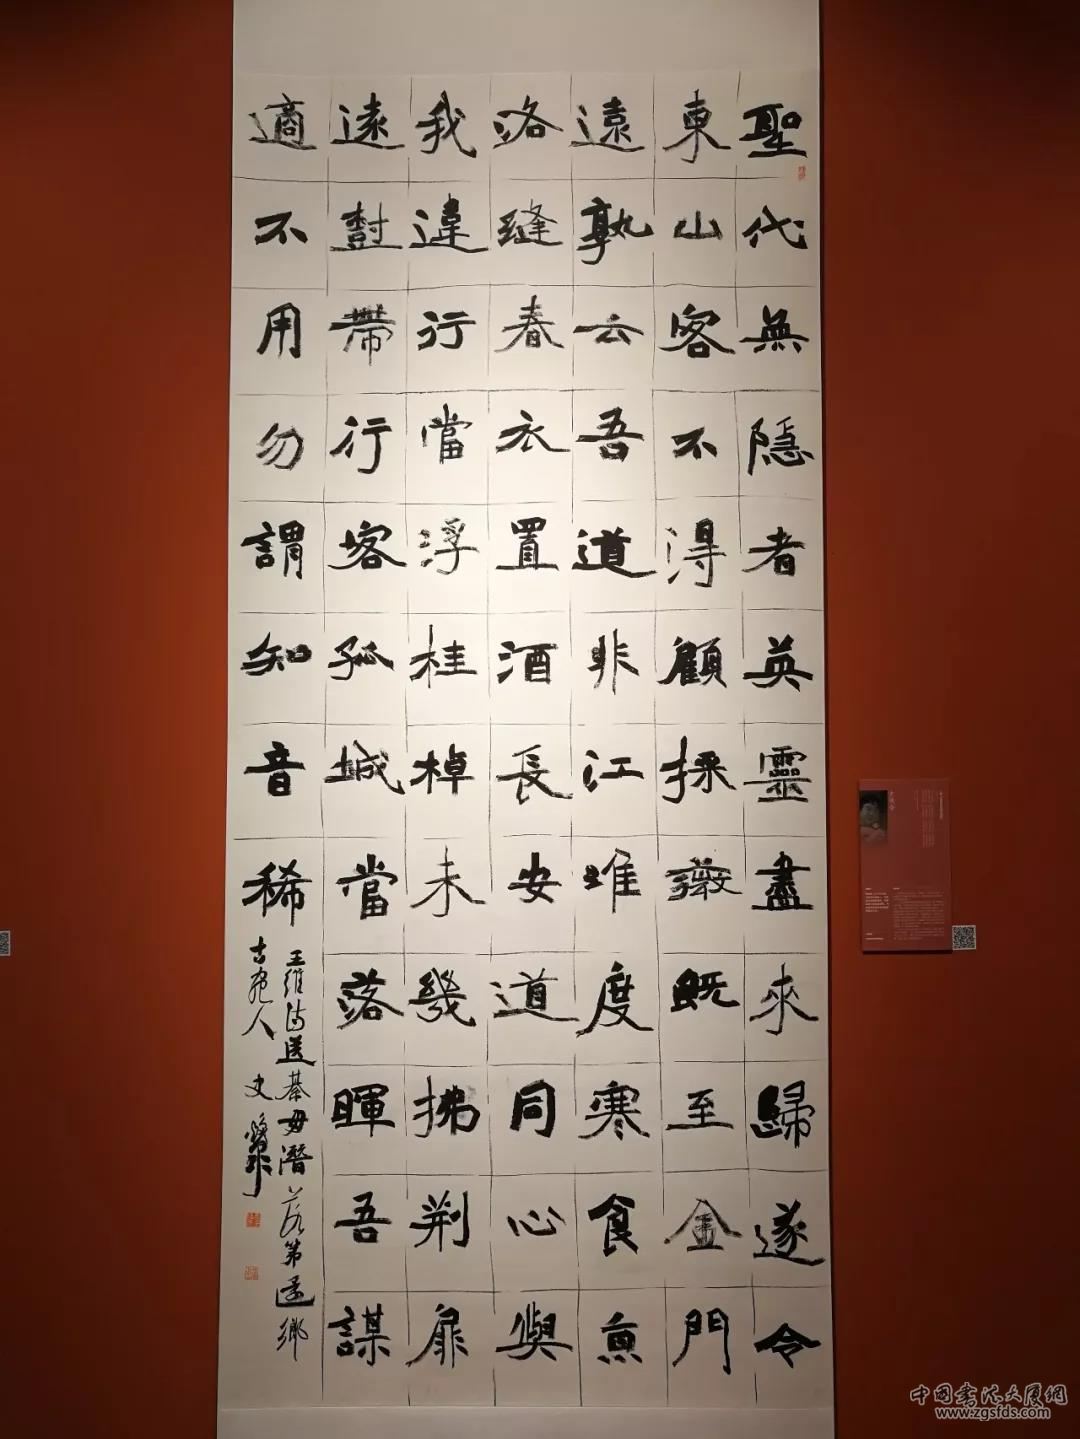 聖代無隱者英靈盡來歸遂令
東山客不得顧採薇既至金門
遠孰云吾道非江淮度寒食京
洛縫春衣置酒長安道同心與
我違行當浮桂棹未幾拂荊扉
遠樹帶行客孤城當落暉吾謀
適不用勿謂知音稀
王維詩送綦毋潛落第還鄉
古宛人 史
中国书法大厦網
www.zgsfds.com